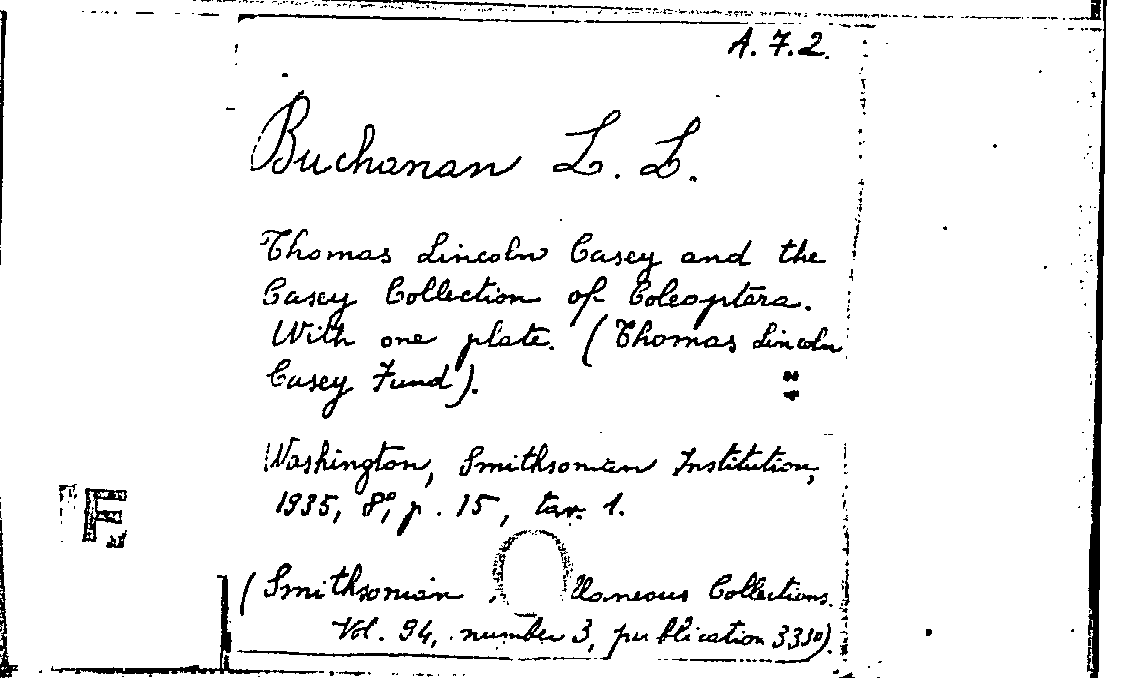 A. 7. 2.
Buchanan L. L.
Thomas Lincoln Casey and the
Casey Collection of Coleoptera.
With one plate. (Thomas Lincoln
Casey Fund).
Washington, Smithsonian Institution,
1935, 8°, p. 15, tav. 1.
(Smithsonian llaneous Collections.
Vol. 94, number 3, publication 3330).
F